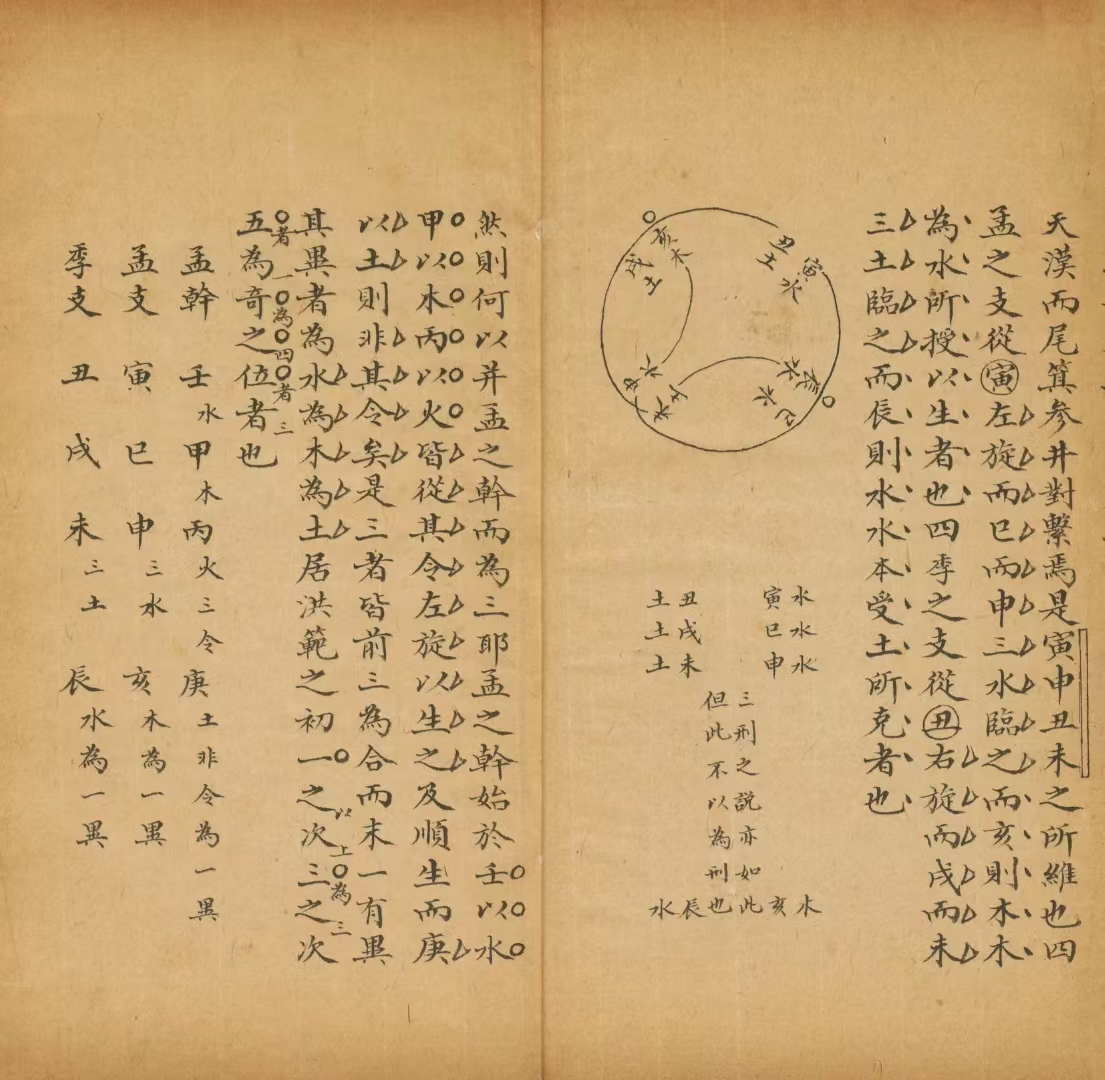 天漢而尾箕參井對繫焉是寅申丑未之所維也四
孟之支從寅左旋而巳而申三水臨之而亥則木木
為水所授以生者也四季之支從丑右旋而戌而未
三土臨之而辰則水水本受土所克者也
寅水
丑土
亥木
戌土
巳水
水水水
寅巳申
丑戌未
土土土
三刑之說亦如此
但此不以為刑也
木
亥
辰
水
然則何以并孟之幹而為三耶孟之幹始於壬以水
甲以木丙以火皆從其令左旋以生之及順生而庚
以土則非其令矣是三者皆前三為合而末一有異
其異者為水為木為土居洪範之初一之次三之次
以上〇為三
〇者一〇為〇四〇者三
五為奇之伍者也
孟幹 壬水 甲木 丙火三令 庚土非令為一異
孟支 寅 巳 申三水 亥木為一異
季支 丑 戌 未三土 辰水為一異